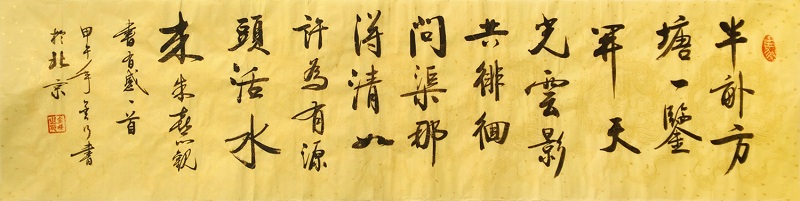 半畝方
塘一鑒
開天
光雲影
共徘徊
問渠那
得清如
許為有源
頭活水
来朱熹觀
書有感一首
甲午年書
於北京